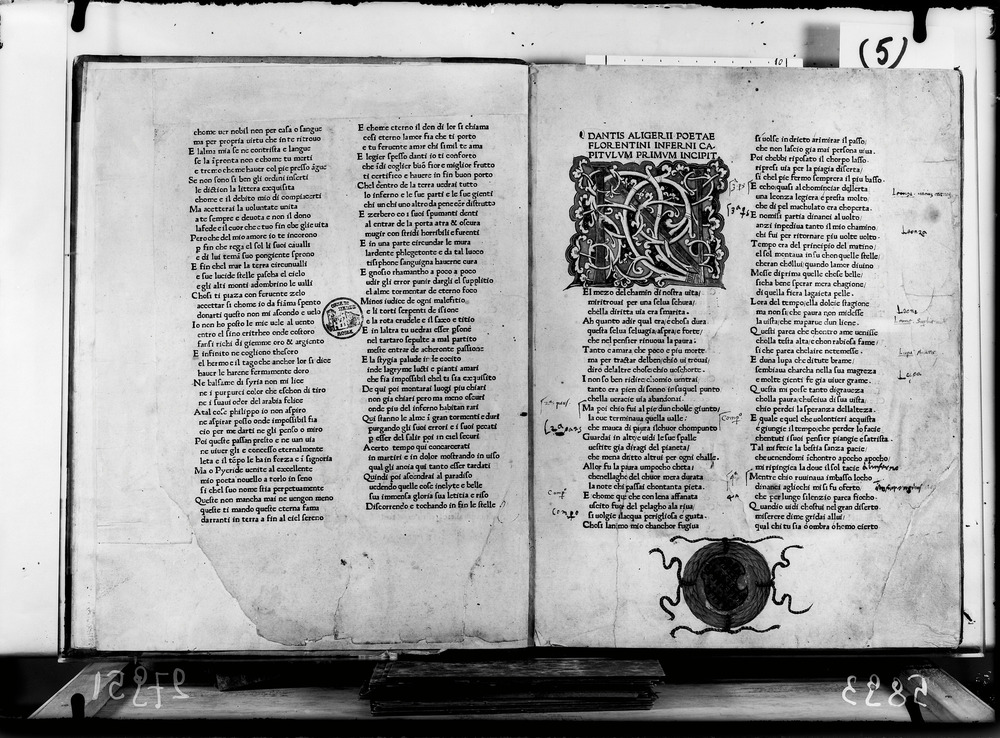 (5)
10
chome uer nobil non per casa o sangue
ma per propria uirtu che in te ritrouo
E lalma mia se ne contrista e langue
se la spronta non echome tu merti
e tremo che mehauer col pie presso ague
Se non sono si ben gli ordini inserti
le diction la littera exquisita
chome e il debito mio di compiacerti
Ma accetterai la uoluntate unita
a te sempre e deuota e non il dono
la fede e il cuor che e tuo fin che glie uita
Peroche del mio amore io te incorono
p fin che rega el sol li suoi caualli
e di lui tema suo pongiente sprono
E fin chel mar la terra circunualli
e sue lucide stelle pascha el cielo
e gli alti monti adombrino le ualli
Chosi ti piaza con feruente zelo
accettar si chome io da fiama spento
donarti questo non mi ascondo e uelo
Io non ho posto le mie uele al uento
entro el sino erithreo onde costoro
farsi richi di giemme oro & argiento
E infinito ne cogliono thesero
el hermo e il tago che anchor lor si dice
hauer le harene fermamente doro
Ne balsame di syria non mi lice
ne i purpurei color che eschon di tiro
ne i suaui odor del arabia felice
Atal cose philippo io non aspiro
ne aspirar posso onde impossibil fia
cio per me darti ne gli penso o miro
Poi queste passan presto e ne uan uia
ne uiuer gli e concesso eternalmente
leta e il tēpo le ha in forza e i signoria
Ma o Pyeride uenite al excellente
mio poeta nouello a torlo in seno
si chel suo nome stia perpetuamente
Queste non mancha mai ne uengon meno
queste ti mando queste eterna fama
darranti in terra a fin al ciel sereno
E chome eterno il don di lor si chiama
cosi eterno lamor fia che ti porto
e tu feruente amar chi simil te ama
E legier spesso danti io ti conforto
che idi coglier buō fior e miglior frutto
ti certifico e hauere in fin buon porto
Chel dentro de la terra uedrai tutto
lo inferno e le sue parti e le sue gienti
chi un chi uno altro da pene eēr distrutto
E zerbero co i suoi spumanti denti
al entrar de la porta atra & oscura
mugir con stridi horribili e furenti
E in una parte circundar le mura
lardente phlegetonte e da tal luoco
tisiphone sanguigna hauerne cura
E gnosio rhamantho a poco a poco
udir gli error punir dargli el supplitio
el alme tormentar de eterno foco
Minos iudice de ogni malefitio
e li torti serpenti de isione
e la rota crudele e il sacco e titio
E in laltra tu uedrai esser pōsne
nel tartaro sepulte a mal partito
meste entrar de acheronte passione
E la stygia palude ir le cocito
inde lagryme lucti e pianti amari
che fia impossibil chel ta sia exquisito
De qui poi montarai luogi piu chiari
non gia chiari pero ma meno oscuri
onde piu del inferno habitan rari
Qui stanno le alme i gran tormenti e duri
purgando gli suoi errori e i suoi peccati
p esser del salir poi in ciel securi
Acerto tempo qui concarcerati
in martiri e in dolor mostrando in uiso
qual gli ancia qui tanto esser tardati
Quindi poi ascendrai al paradiso
uedendo quelle cose inclyte e belle
sua immensa gloria sua letitia e riso
Discorrendo e tochando in fin le stelle
DANTIS ALIGERII POETAE
FLORENTINI INFERNI CA-
PITVLVM PRIMVM INCIPIT
El mezo del chamin di nostra uita
mi ritrouai per una selua schura
chella diritta uia era smarita
Ah quanto adir qual era e chosa dura
questa selua seluagia aspra e forte
che nel pensier rinuoua la paura
Tanto e amara che poco e piu morte
ma per trattar del ben chio ui trouai
diro delaltre chose chio uoschorte
I non so ben ridire chomio uentrai
tanto era pien di sonno in su quel punto
chella ueracie uia abandonai
Ma poi chio fui al pie dun cholle giunto
la oue terminaua quella ualle
che mauea di paura il chuor chompunto
Guardai in alto e uidi le sue spalle
uestite gia diragi del pianeta
che mena dritto altrui per ogni challe
Allor fu la paura umpocho cheta
chenellagho del chuor mera durata
la note chi passai chontanta pieta
E chome que che con lena affanata
uscito fuor del pelagho ala riua
si uolgie alacqua perigliosa e guata
Chosi lanimo mio chanchor fugiua
si uolse indrieto arimirar il passo
che non lascio gia mai persona uiua
Poi chebbi riposato il chorpo lasso
ripresi uia per la piagia diserta
si chel pie fermo sempre era il piu basso
E echo quasi al chominciar dellerta
una leonza legiera e presta molto
che di pel machulato era choperta
E nomisi partia dinanci al uolto
anzi impediua tanto il mio chamino
chi fui per ritornare piu uolte uolto
Tempo era del principio del matino
el sol montaua in su chon quelle stelle
cheran chollui quando lamor diuino
Messe di prima quelle chose belle
si cha bene sperar mera chagione
di quella fiera la gaieta pelle
Lora del tempo ella dolce stagione
ma non si che paura non midesse
la uista che maparue dun liene
Questi parea che chontro ame uenisse
cholla testa alta e chon rabiosa fame
si che parea chelaire netemesse
E duna lupa che ditute brame
sembiaua charcha nella sua magreza
e molte gienti fe gia uiuer grame
Questa mi pose tanto digraueza
cholla paura chusciua di sua uista
chio perdei la speranza dellalteza
E quale e quel che uolontieri acquista
e giungie il tempo che perder lo facie
chentuti i suoi pensier piangie e satrista
Tal mi fecie la bestia sanza pacie
che uenendomi ichontro apocho apocho
mi ripingica la doue il sol tacie
Mentre chio ruuinaua imbasso locho
dinanci agliochi mi si fu oferto
che per lungo silenzio parea fiocho
Quando uidi chostui nel gran diserto
miserere dime gridai allui
qual chi tu sia o ombra o homo cierto
Leonza
Leone
Lupa
Comp.
27951
5893